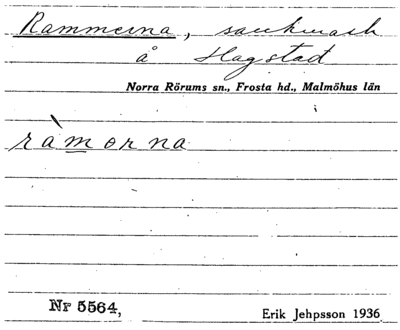 Rammerna, sankmark
å Hagstad
Norra Rörums sn., Frosta hd., Malmöhus län
ràmorna
Nr 5564,
Erik Jehpsson 1936